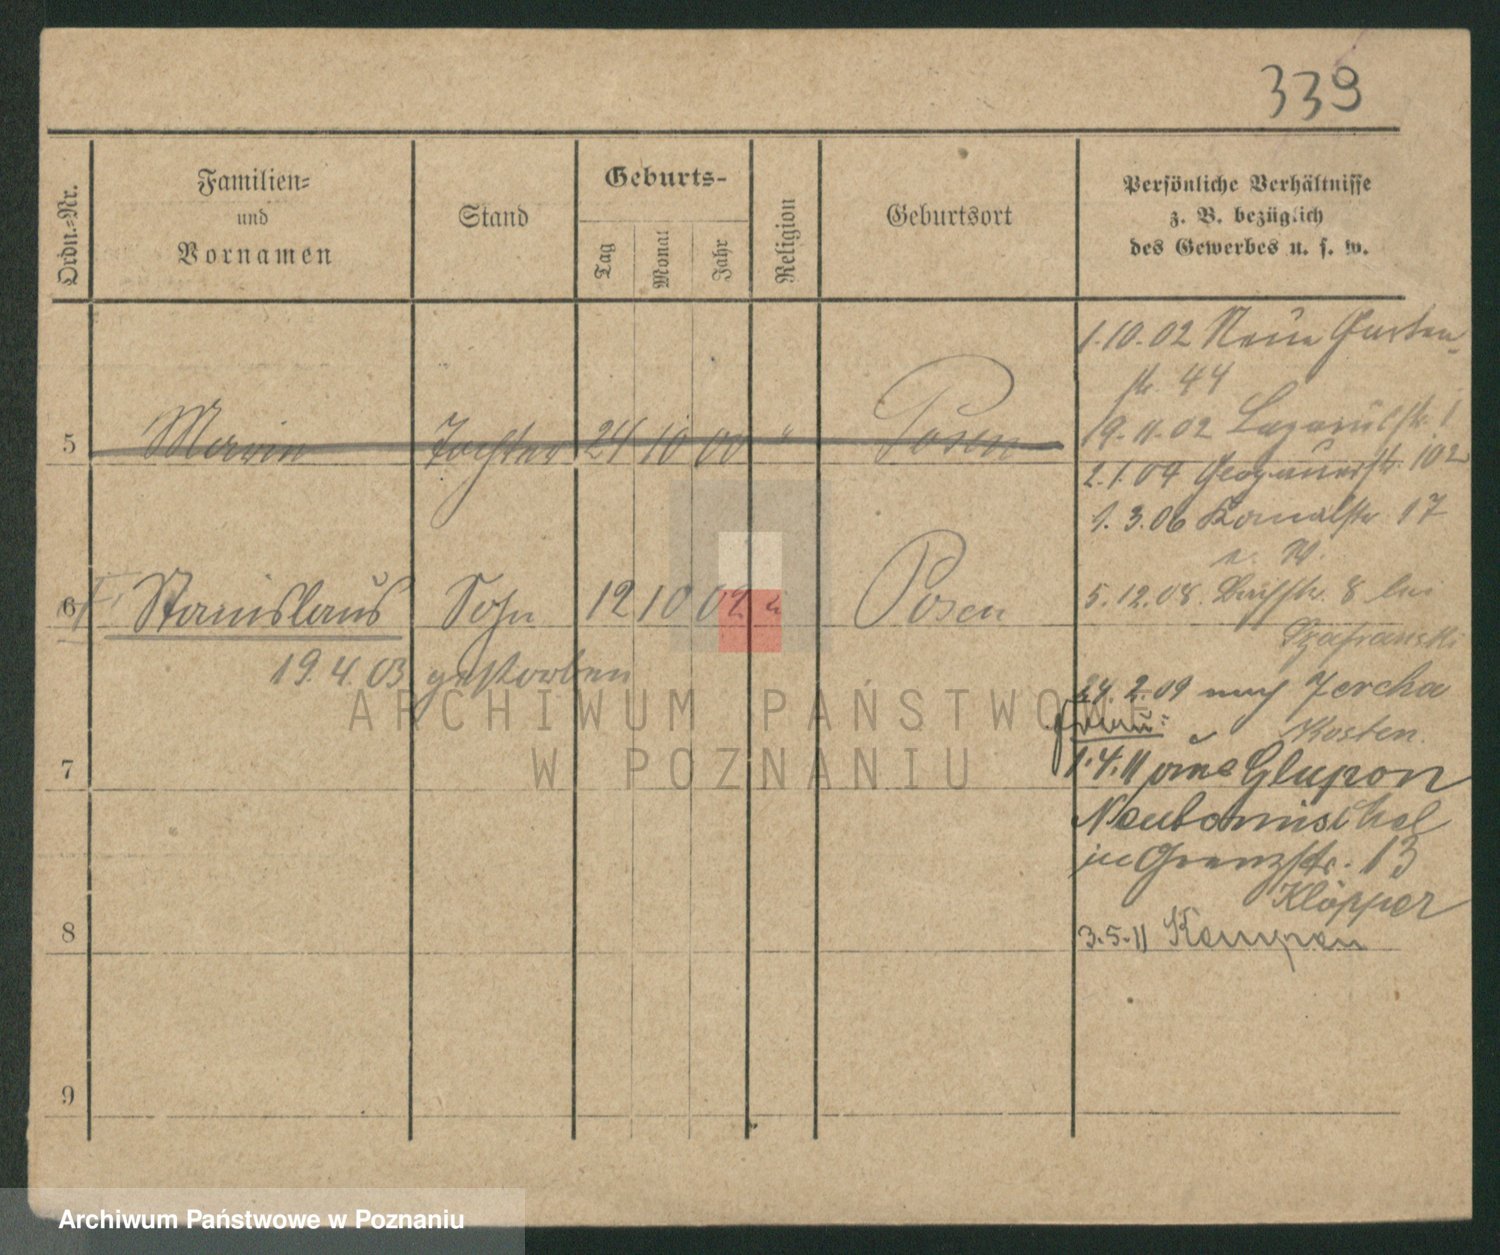 339
Ordn.=Nr.
Familien=
und
Vornamen
Stand
Geburts-
Tag
Monat
Jahr
Religion
Geburtsort
Persönliche Verhältnisse
z. B. bezüglich
des Gewerbes u. s. w.
1.10.02 Neue Garten-
str. 44
5 Marie Tochter 24 10 00 " Posen
19.11.02 Lazarusstr. 1
2.1.04 Glogauerstr. 102
1.3.06 Kanalstr. 17
6 Stanislaus Sohn 12 10 02 " Posen
5.12.08 8 bei
Szafranski
19.4.03 gestorben
24.2.09 nach Jercha
Kosten.
Frau:
7
1.4.11 aus Glupon
Neutomischel
in Grenzstr. 13
Klöpper
8
3.5.11 Kempen
9
ARCHIWUM PAŃSTWOWE
W POZNANIU
Archiwum Państwowe w Poznaniu